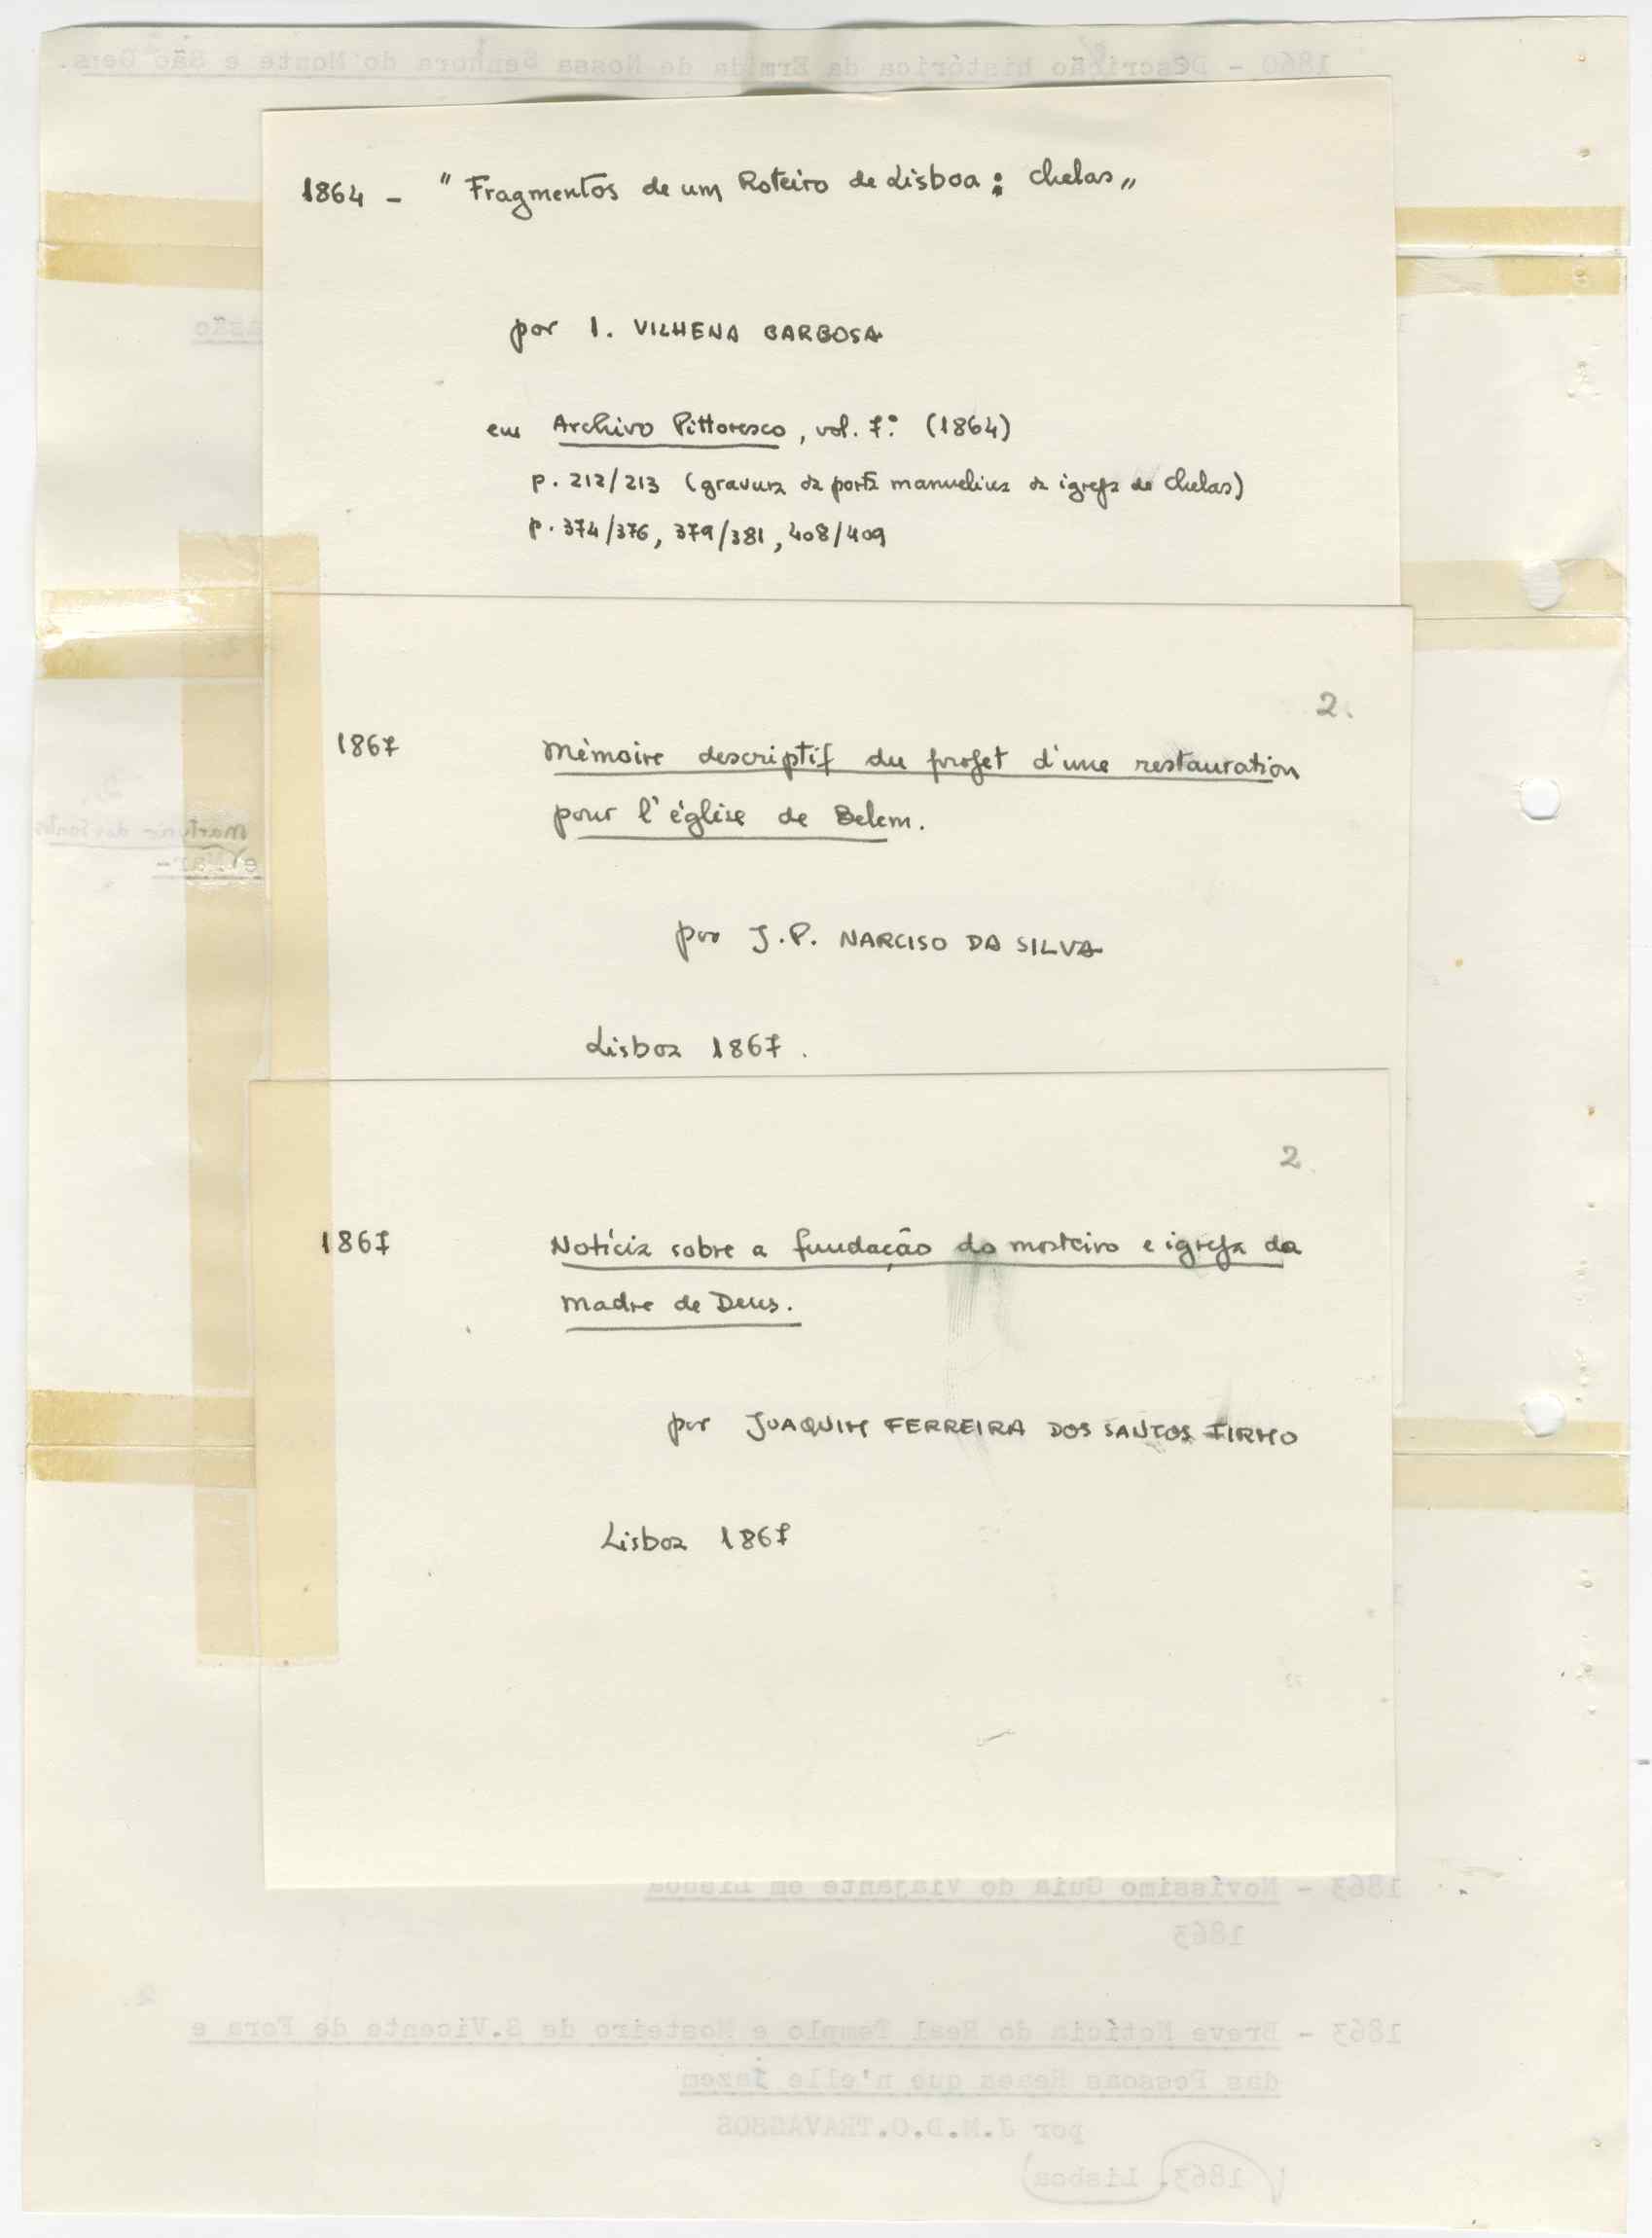 1860 - Descrição histórica da Ermida de Nossa Senhora do Monte e São Gens.
1864 - "Fragmentos de um Roteiro de Lisboa: Chelas"
por I. VILHENA BARBOSA
em Archivo Pittoresco, vol. 7º (1864)
p. 212/213 (gravura da porta manuelina da igreja de Chelas)
p. 374/376, 379/381, 408/409
2.
1867 Mémoire descriptif du projet d'une restauration
pour l'église de Belem.
por J.P. NARCISO DA SILVA
Lisboa 1867.
2
1867 Notícia sobre a fundação do mosteiro e igreja da
Madre de Deus.
por JOAQUIM FERREIRA DOS SANTOS FIRMO
Lisboa 1867
1863 - Novíssimo Guia do Viajante em Lisboa
1863
2.
1863 - Breve Notícia do Real Templo e Mosteiro de S.Vicente de Fora e
das Pessoas Reaes que n'elle jazem
por J.M.D.O.TRAVASSOS
1863. Lisboa